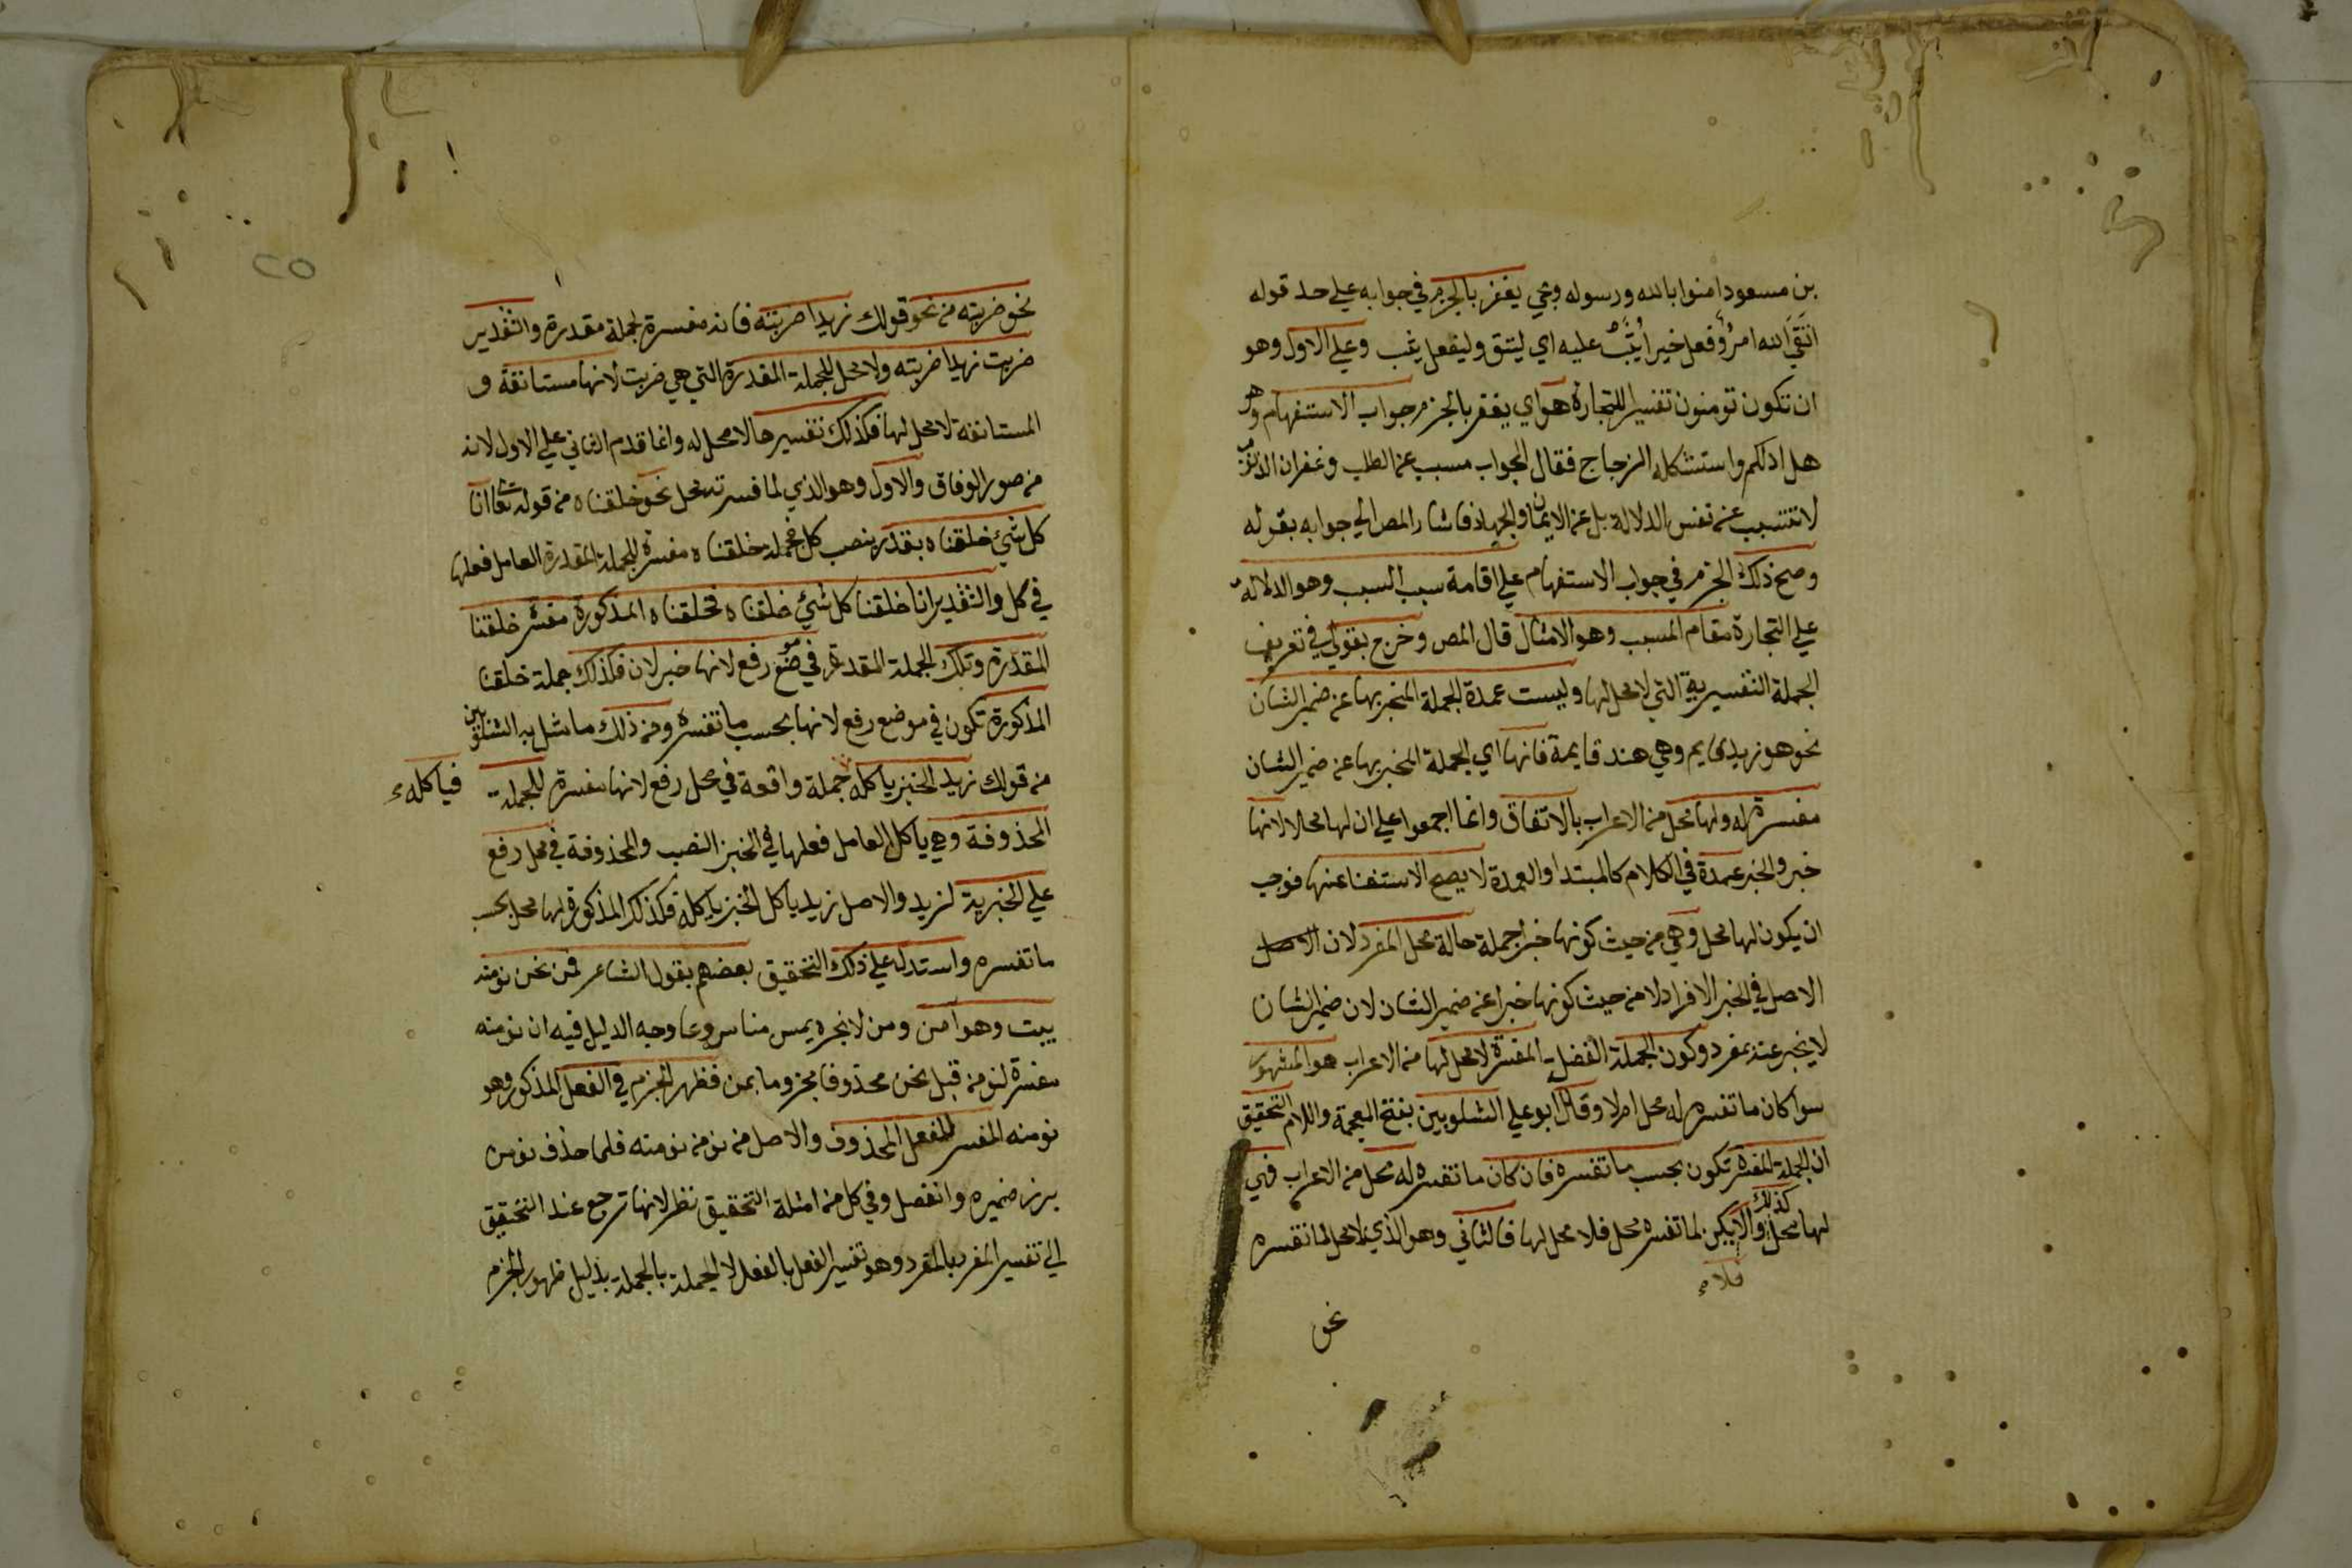 بن مسعود امنوا بالله ورسوله وبجي يغفر بالجزم في جوابه علي حد قوله
اتقي الله امرؤ فعل خيرا يثب عليه اي ليتق وليفعل يثب وعلي الاول وهو
ان تكون تومنون تفسيرا للتجارة هو اي يغفر بالجزم جواب الاستفهام وهو
هل ادلكم واستشكله الزجاج فقال الجواب مسبب عن الطلب وغفران الذنوب
لا تتسبب عن نفس الدلالة بل عن الايمان والجهاد فاشار المص الي جوابه بقوله
وصح ذلك الجزم في جواب الاستفهام علي اقامة سبب السبب وهو الدلالة
علي التجارة مقام المسبب وهو الامتثال قال المص وخرج بقولي في تعريف
الجملة التفسيرية التي لا محل لها وليست عمدة الجملة المخبر بها عن ضمير الشان
نحو هو زيد قايم وهي هند قايمة فانها اي الجملة المخبر بها عن ضمير الشان
مفسرة له ولها محل من الاعراب بالاتفاق وانما اجمعوا علي ان لها محلا لانها
خبر والخبر عمدة في الكلام كالمبتدا والعمدة لا يصح الاستغنا عنها فوجب
ان يكون لها محل وهي من حيث كونها خبرا جملة حالة محل المفرد لان الاصل
الاصل في الخبر الافراد لا من حيث كونها خبرا عن ضمير الشان لان ضمير الشان
لا يخبر عنه بمفرد وكون الجملة الفضلة المفسرة لا محل لها من الاعراب هو المشهور
سوا كان ما تفسره له محل ام لا وقال ابو علي الشلوبين بفتح المعجمة واللام التحقيق
ان الجملة المفسرة تكون بحسب ما تفسره فان كان ما تفسره له محل من الاعراب فهي
كذلك
لها محل والا يكن لما تفسره محل فلا محل لها فالثاني وهو الذي لا محل لما تفسره
فلا
نحو
٢٥
نحو ضربته من نحو قولك زيدا ضربته فانه مفسرة لجملة مقدرة والتقدير
ضربت زيدا ضربته ولا محل للجملة المقدرة التي هي ضربت لانها مستانفة و
المستانفة لا محل لها فكذلك تفسيرها لا محل له وانما قدم الثاني علي الاول لانه
من صور الوفاق والاول وهو الذي لما فسرته محل نحو خلقناه من قوله تعا انا
كل شيء خلقناه بقدر بنصب كل فجملة خلقناه مفسرة للجملة المقدرة العامل فعلها
في كل والتقدير انا خلقنا كل شيء خلقناه فخلقناه المذكورة مفسرة خلقنا
المقدرة وتلك الجملة المقدرة في موضع رفع لانها خبر لان فكذلك جملة خلقنا
المذكورة تكون في موضع رفع لانها بحسب ما تفسره ومن ذلك ما مثل به الشلوبين
من قولك زيد الخبز ياكله جملة واقعة في محل رفع لانها مفسرة للجملة
فياكله
المحذوفة وهي ياكل العامل فعلها في الخبز النصب والمحذوفة في محل رفع
علي الخبرية لزيد والاصل زيد ياكل الخبز ياكله فكذلك المذكورة لها محل بحسب
ما تفسره واستدل علي ذلك التحقيق بعضهم بقول الشاعر فمن نحن نومنه
يبت وهو آمن ومن لا نجره يمس منا مروعا وجه الدليل فيه ان نومنه
مفسرة لنومن قبل نحن محذوفا مجزوما بمن فظهر الجزم في الفعل المذكور وهو
نومنه المفسر للفعل المحذوف والاصل من نومن نومنه فلما حذف نومن
برز ضميره وانفصل وفي كل من امثلة التحقيق نظر لانها ترجع عند التحقيق
الي تفسير المفرد بالمفرد وهو تفسير الفعل بالفعل لا الجملة بالجملة بدليل ظهور الجزم